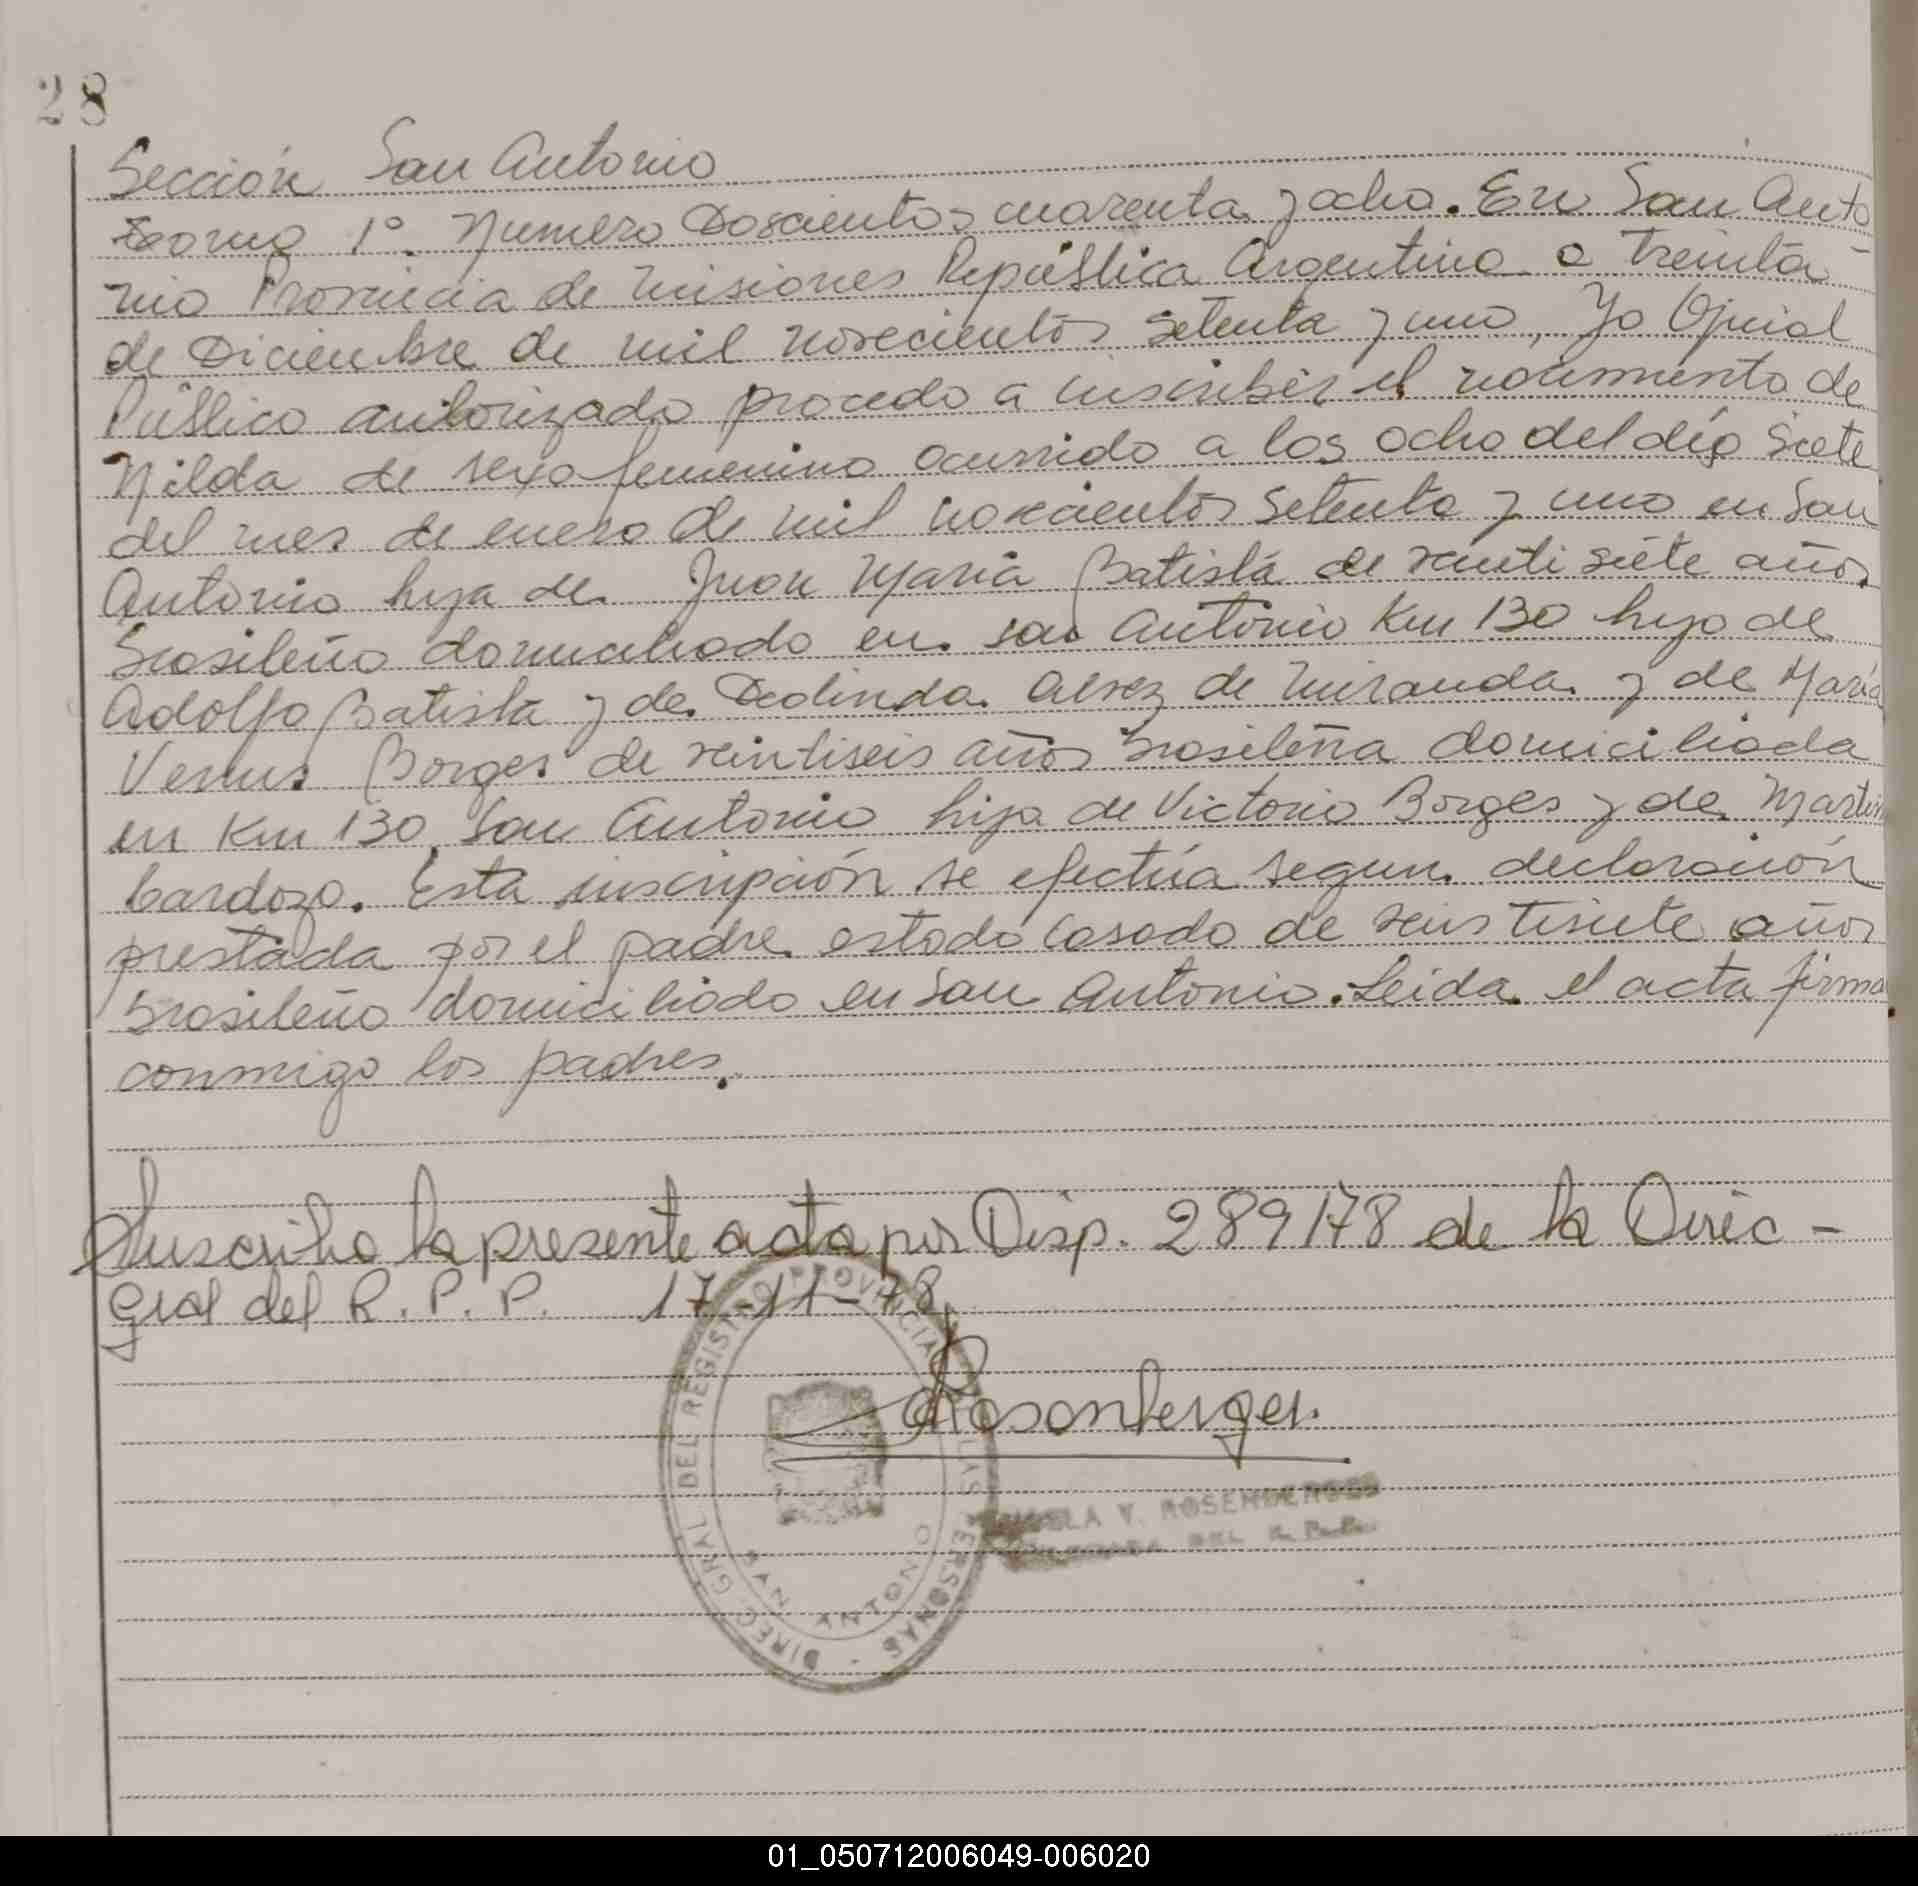 28
Sección San Antonio
Tomo 1º. Numero Doscientos cuarenta y ocho. En San Anto
nio Provincia de Misiones República Argentina a treinta
de Diciembre de mil novecientos setenta y uno, Yo Oficial
Público autorizado procedo a inscribir el nacimiento de
Nilda de sexo femenino ocurrido a las ocho del día siete
del mes de enero de mil novecientos setenta y uno en San
Antonio hija de Juan María Batista de veinti siete años
brasileño domiciliado en San Antonio Km 130 hijo de
Adolfo Batista y de Deolinda Alvez de Miranda y de María
Venus Borges de veintiseis años brasileña domiciliada
en Km 130 San Antonio hija de Victorio Borges y de
Cardozo. Esta inscripción se efectúa segun declaración
prestada por el padre estado casado de veintisiete años
brasileño domiciliado en San Antonio. Leida el acta firma
conmigo los padres.
Suscribo la presente acta por Disp. 289/78 de la Direc-
Gral del R. P. P. 17-11-78
Rosenberger.
DIREC. GRAL. DEL REGISTRO PROVINCIAL DE LAS PERSONAS -
SAN ANTONIO
V. ROSENBERGER
DEL R. P. P.
01_050712006049-006020